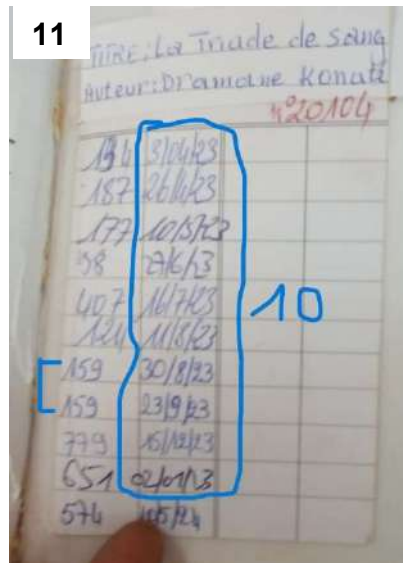 11
TITRE: La Triade de sang
Auteur: Dramane Konaté
n°20104
194 3/04/23
187 26/4/23
177 10/5/23
98 27/6/23
407 16/7/23
124 11/8/23
159 30/8/23
10
159 23/9/23
779 15/12/23
651 02/01/23
574 10/5/24